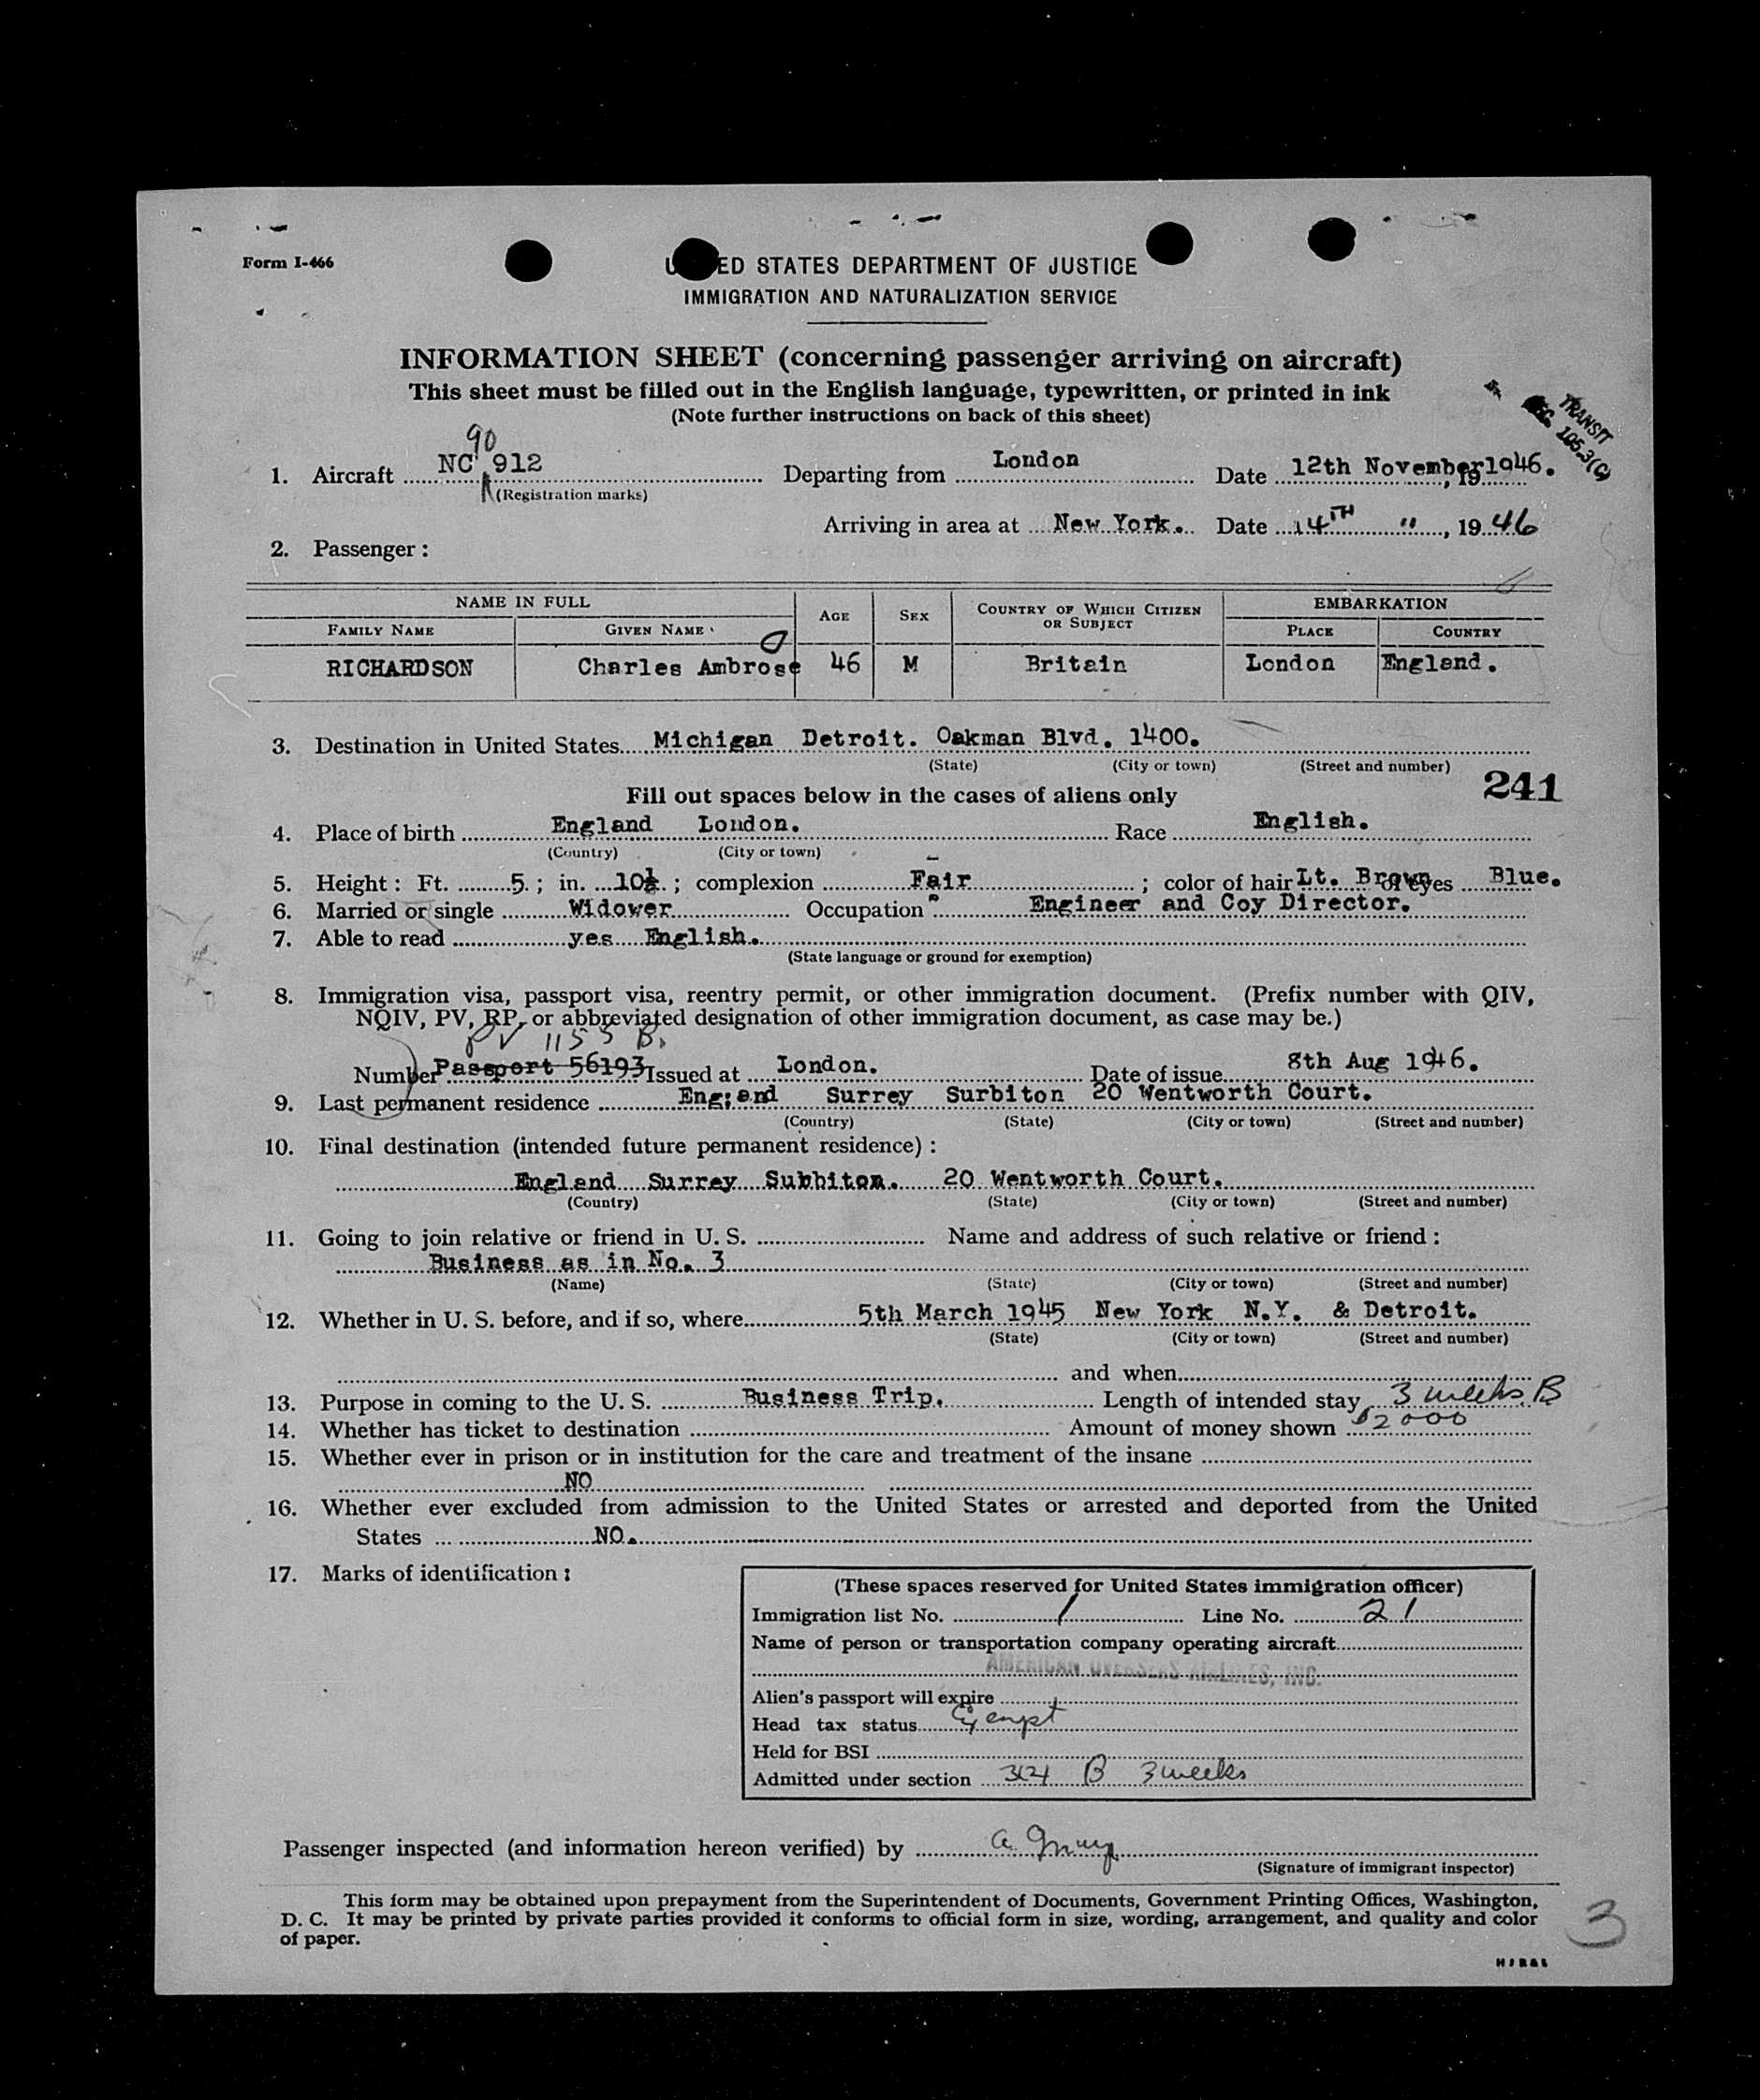 Form I-466
UNITED STATES DEPARTMENT OF JUSTICE
IMMIGRATION AND NATURALIZATION SERVICE
INFORMATION SHEET (concerning passenger arriving on aircraft)
This sheet must be filled out in the English language, typewritten, or printed in ink
(Note further instructions on back of this sheet)
TRANSIT
SEC. 105.3(C)
90
1. Aircraft NC 912 Departing from London Date 12th November 1946. , 19
(Registration marks)
Arriving in area at New York. Date 14TH " , 19 46
2. Passenger :
NAME IN FULL AGE SEX COUNTRY OF WHICH CITIZEN OR SUBJECT EMBARKATION
FAMILY NAME GIVEN NAME PLACE COUNTRY
RICHARDSON Charles Ambrose 46 M Britain London England.
3. Destination in United States Michigan Detroit. Oakman Blvd. 1400.
(State) (City or town) (Street and number)
241
Fill out spaces below in the cases of aliens only
4. Place of birth England London. Race English.
(Country) (City or town)
5. Height : Ft. 5 ; in. 10½ ; complexion Fair ; color of hair Lt. Brown of eyes Blue.
6. Married or single Widower Occupation Engineer and Coy Director.
7. Able to read yes English.
(State language or ground for exemption)
8. Immigration visa, passport visa, reentry permit, or other immigration document. (Prefix number with QIV,
NQIV, PV, RP, or abbreviated designation of other immigration document, as case may be.)
PV 1153 B.
Number Passport 56193 Issued at London. Date of issue 8th Aug 1946.
9. Last permanent residence Eng;and Surrey Surbiton 20 Wentworth Court.
(Country) (State) (City or town) (Street and number)
10. Final destination (intended future permanent residence) :
England Surrey Subbiton. 20 Wentworth Court.
(Country) (State) (City or town) (Street and number)
11. Going to join relative or friend in U. S. Name and address of such relative or friend :
Business as in No. 3
(Name) (State) (City or town) (Street and number)
12. Whether in U. S. before, and if so, where 5th March 1945 New York N.Y. & Detroit.
(State) (City or town) (Street and number)
and when
13. Purpose in coming to the U. S. Business Trip. Length of intended stay 3 weeks. B
14. Whether has ticket to destination Amount of money shown $2000
15. Whether ever in prison or in institution for the care and treatment of the insane
NO
16. Whether ever excluded from admission to the United States or arrested and deported from the United
States NO.
17. Marks of identification :
(These spaces reserved for United States immigration officer)
Immigration list No. 1 Line No. 21
Name of person or transportation company operating aircraft
AMERICAN OVERSEAS AIRLINES, INC.
Alien's passport will expire
Head tax status Exempt
Held for BSI
Admitted under section 3(2) B 3 weeks
Passenger inspected (and information hereon verified) by
(Signature of immigrant inspector)
This form may be obtained upon prepayment from the Superintendent of Documents, Government Printing Offices, Washington,
D. C. It may be printed by private parties provided it conforms to official form in size, wording, arrangement, and quality and color
of paper.
3